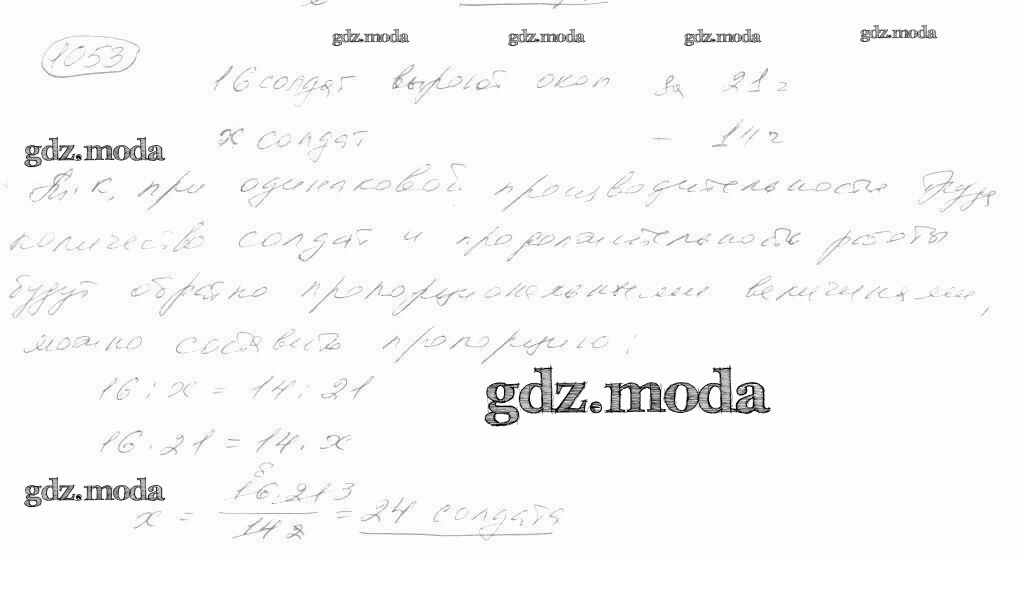 gdz.moda gdz.moda gdz.moda gdz.moda
1053
16 солдат выроют окоп за 21 г
x солдат — 14 г
gdz.moda
Т. к. при одинаковой производительности труда
количество солдат и продолжительность работы
будут обратно пропорциональными величинами,
можно составить пропорцию:
16 : x = 14 : 21
gdz.moda
16 · 21 = 14 · x
gdz.moda
x = 16 · 21 / 14 = 24 солдата